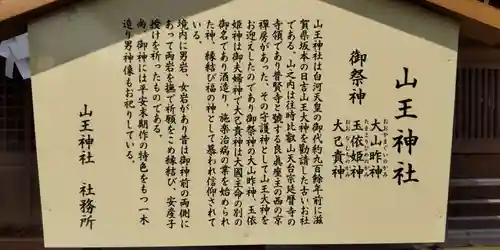 山王神社
御祭神
大山咋神
おおやまぐいのかみ
玉依姫神
たまよりひめのかみ
大己貴神
おおなむちのかみ
山王神社は白河天皇の御代約九百餘年前に滋
賀県坂本の日吉山王大神を勧請した古いお社
である。山之内は往時比叡山天台宗延暦寺の
寺領であり普賢寺と號する良眞座主の西の京
禪房があった。その守護神として山王大神を
お迎えしたのであり御祭神の大山咋神、玉依
姫神は御夫婦神で大己貴神は大國主命の別の
御名であり酒造り、施楽治病の業を始められ
た神、縁結び福の神として慕われ信仰されて
いる。
境内に男岩、女岩があり昔は御神前の両側に
あって両岩を撫で祈願をこめ縁結び、安産子
授けを祈ったものである。
尚、御神には平安末期作の特色をもつ一木
造り男神像もお祀りしている。
山王神社 社務所